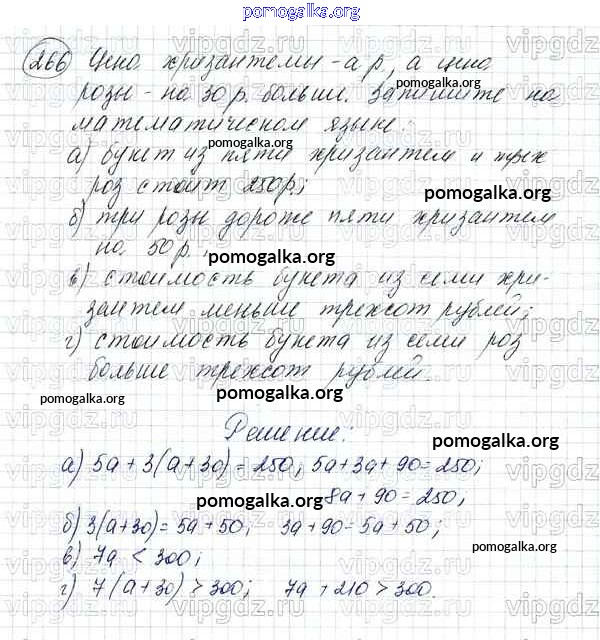 pomogalka.org
266 Цена хризантемы - а р, а цена
pomogalka.org
розы - на 30 р. больше. Запишите на
математическом языке:
pomogalka.org
а) букет из пяти хризантем и трёх
роз стоит 250р.;
pomogalka.org
б) три розы дороже пяти хризантем
на 50 р.;
pomogalka.org
в) стоимость букета из семи хри-
зантем меньше трехсот рублей;
г) стоимость букета из семи роз
больше трехсот рублей.
pomogalka.org
pomogalka.org
Решение:
pomogalka.org
а) 5а + 3(а+30) = 250, 5а+3а+90=250;
8а + 90 = 250,
pomogalka.org
б) 3(а+30) = 5а + 50, 3а+90=5а+50;
в) 7а < 300;
pomogalka.org
г) 7(а+30) > 300; 7а + 210 > 300.
pomogalka.org